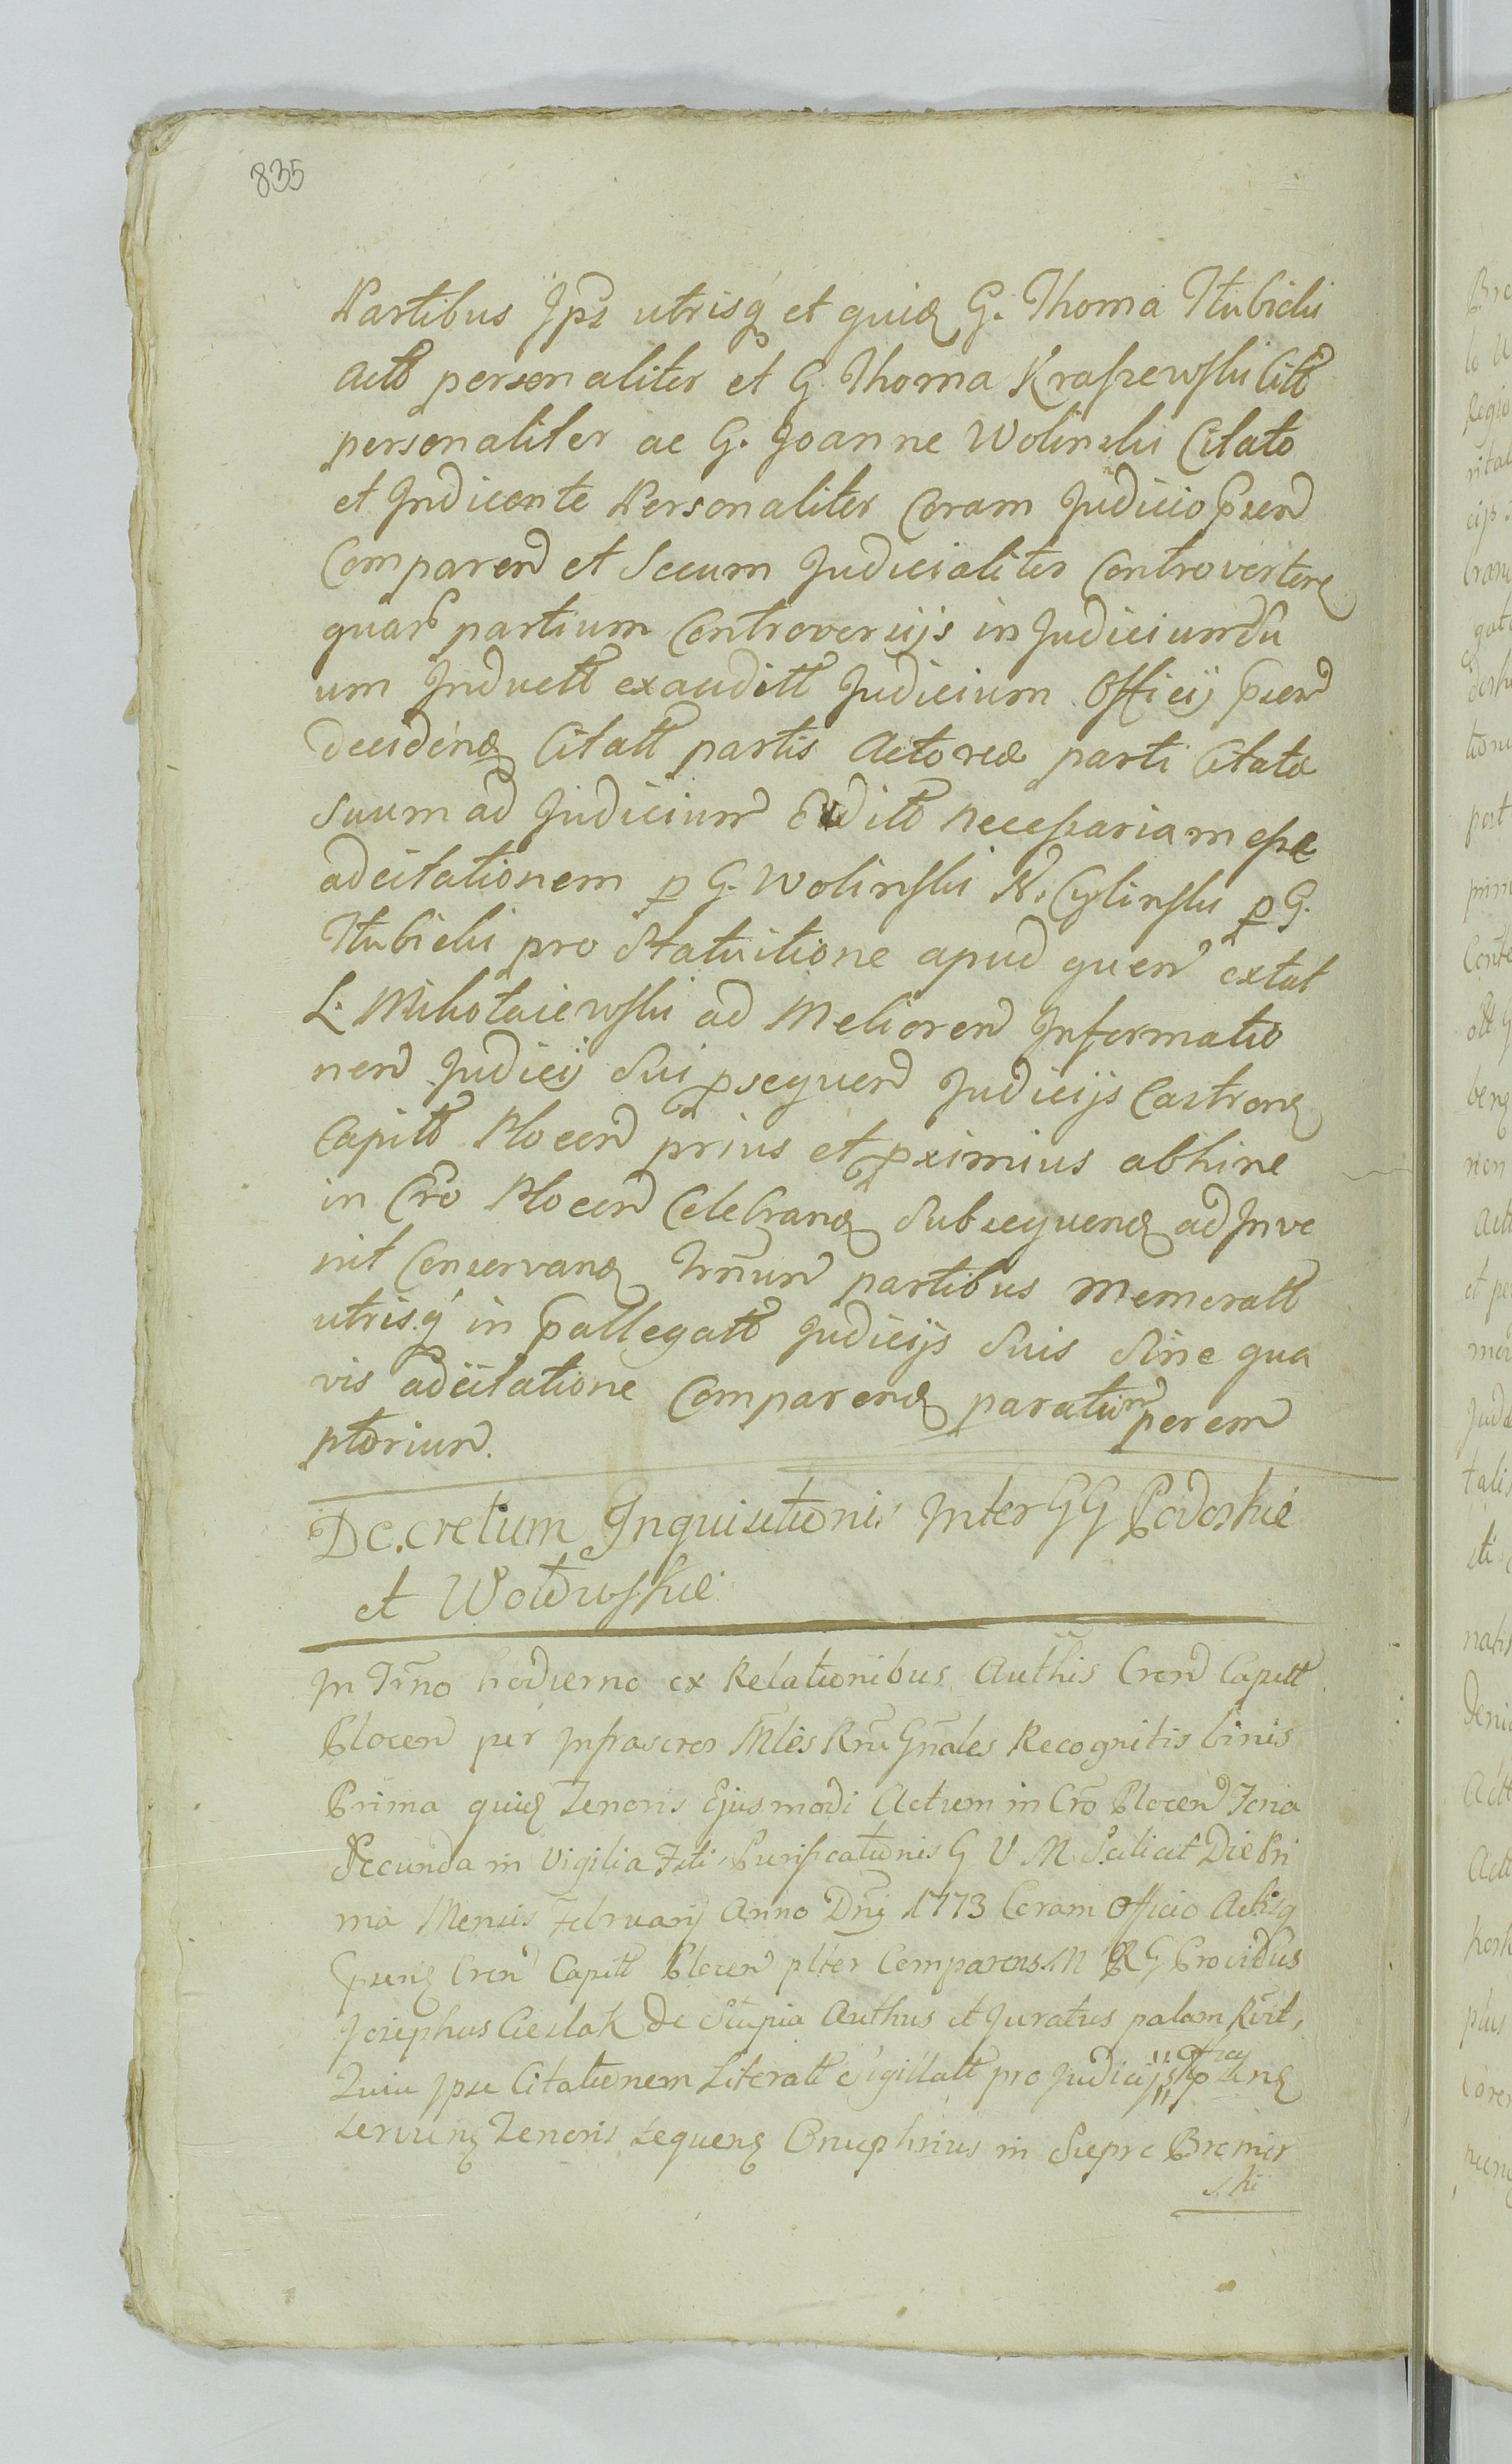 835
Partibus Jps utrisq et quid G. Thoma Itubicki
Actt personaliter et G Thoma Kraszewski Citt
personaliter ac G. Joanne Wolinski Citato
et Indicente Personaliter Coram Judicio psen
Comparen et Secum Judicialiter Controverten
quar partium Controversijs in Judicium Su
um Inductt exauditt Judicium Officij psen
deciden Citatt partis Actoreæ parti Citatæ
Suum ad Judicium Editt Necessariam esse
adcitationem p G. Wolinski N. Cylinski p G.
Itubicki pro Statuitione apud quem extat
L. Mikołaiewski ad Meliorem Informatio
nem Judicij Sui psequen Judicijs Castren
Capitt Plocen prius et pximius abhinc
in Cro Plocen Celebran Subsequen adInve
nit Conservan Trnum partibus Memoratt
utrisq in pallegatt Judicijs Suis Sine qua
vis adcitatione Comparen paratum perem
ptorium.
Decretum Inquisitionis Inter GG Podoskie
et Wołowskie
In Trno hodierno ex Relationibus Authis Cren Capitt
Plocen per Infrascros Mles Rni Gnales Recognitis binis
Prima quid Tenoris Ejusmodi Actum in Cro Plocen Feria
Secunda in Vigilia Fsti Purificationis G V M Scilicet Die Pri
ma Mensis Februarij Anno Dni 1773 Coram Officio Actisq
psen Cren Capitt Plocen plter Comparens M R G Providus
Josephus Cieslak de Słupia Authus et Juratus palam Rvit,
Quia Ipse Citationem Literatt Sigillatt pro Judicijs Officij psens
servien Tenoris sequen Onuphrius in Siepre Bromir
ski